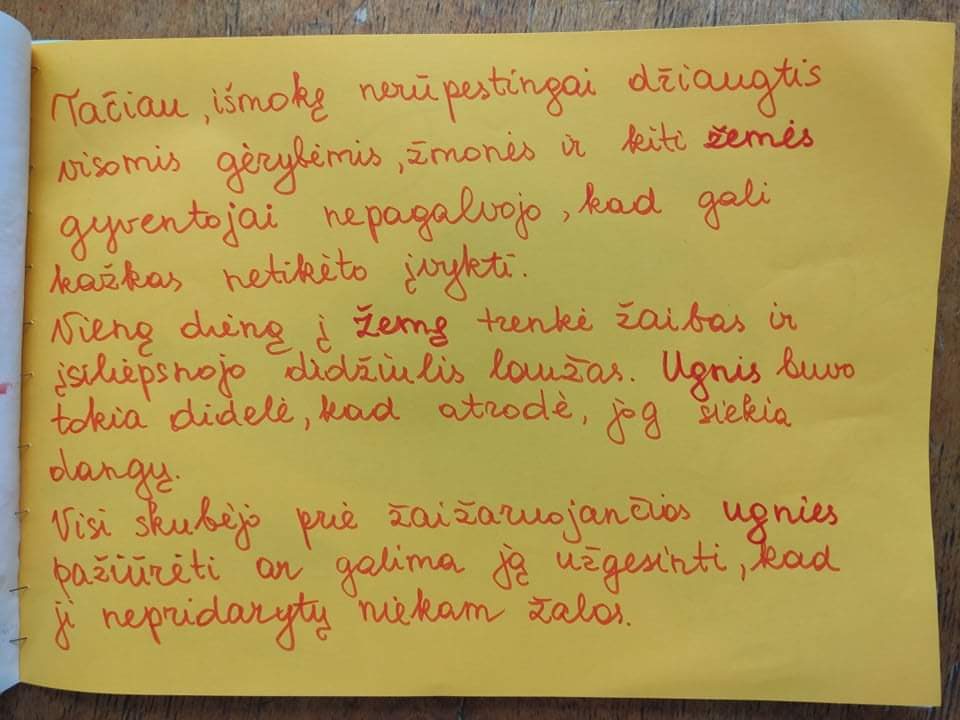 Tačiau, išmokę nerūpestingai džiaugtis
visomis gėrybėmis, žmonės ir kiti žemės
gyventojai nepagalvojo, kad gali
kažkas netikėto įvykti.
Vieną dieną į žemę trenkė žaibas ir
įsiliepsnojo didžiulis laužas. Ugnis buvo
tokia didelė, kad atrodė, jog siekia
dangų.
Visi skubėjo prie žaižaruojančios ugnies
pažiūrėti ar galima ją užgesinti, kad
ji nepridarytų niekam žalos.